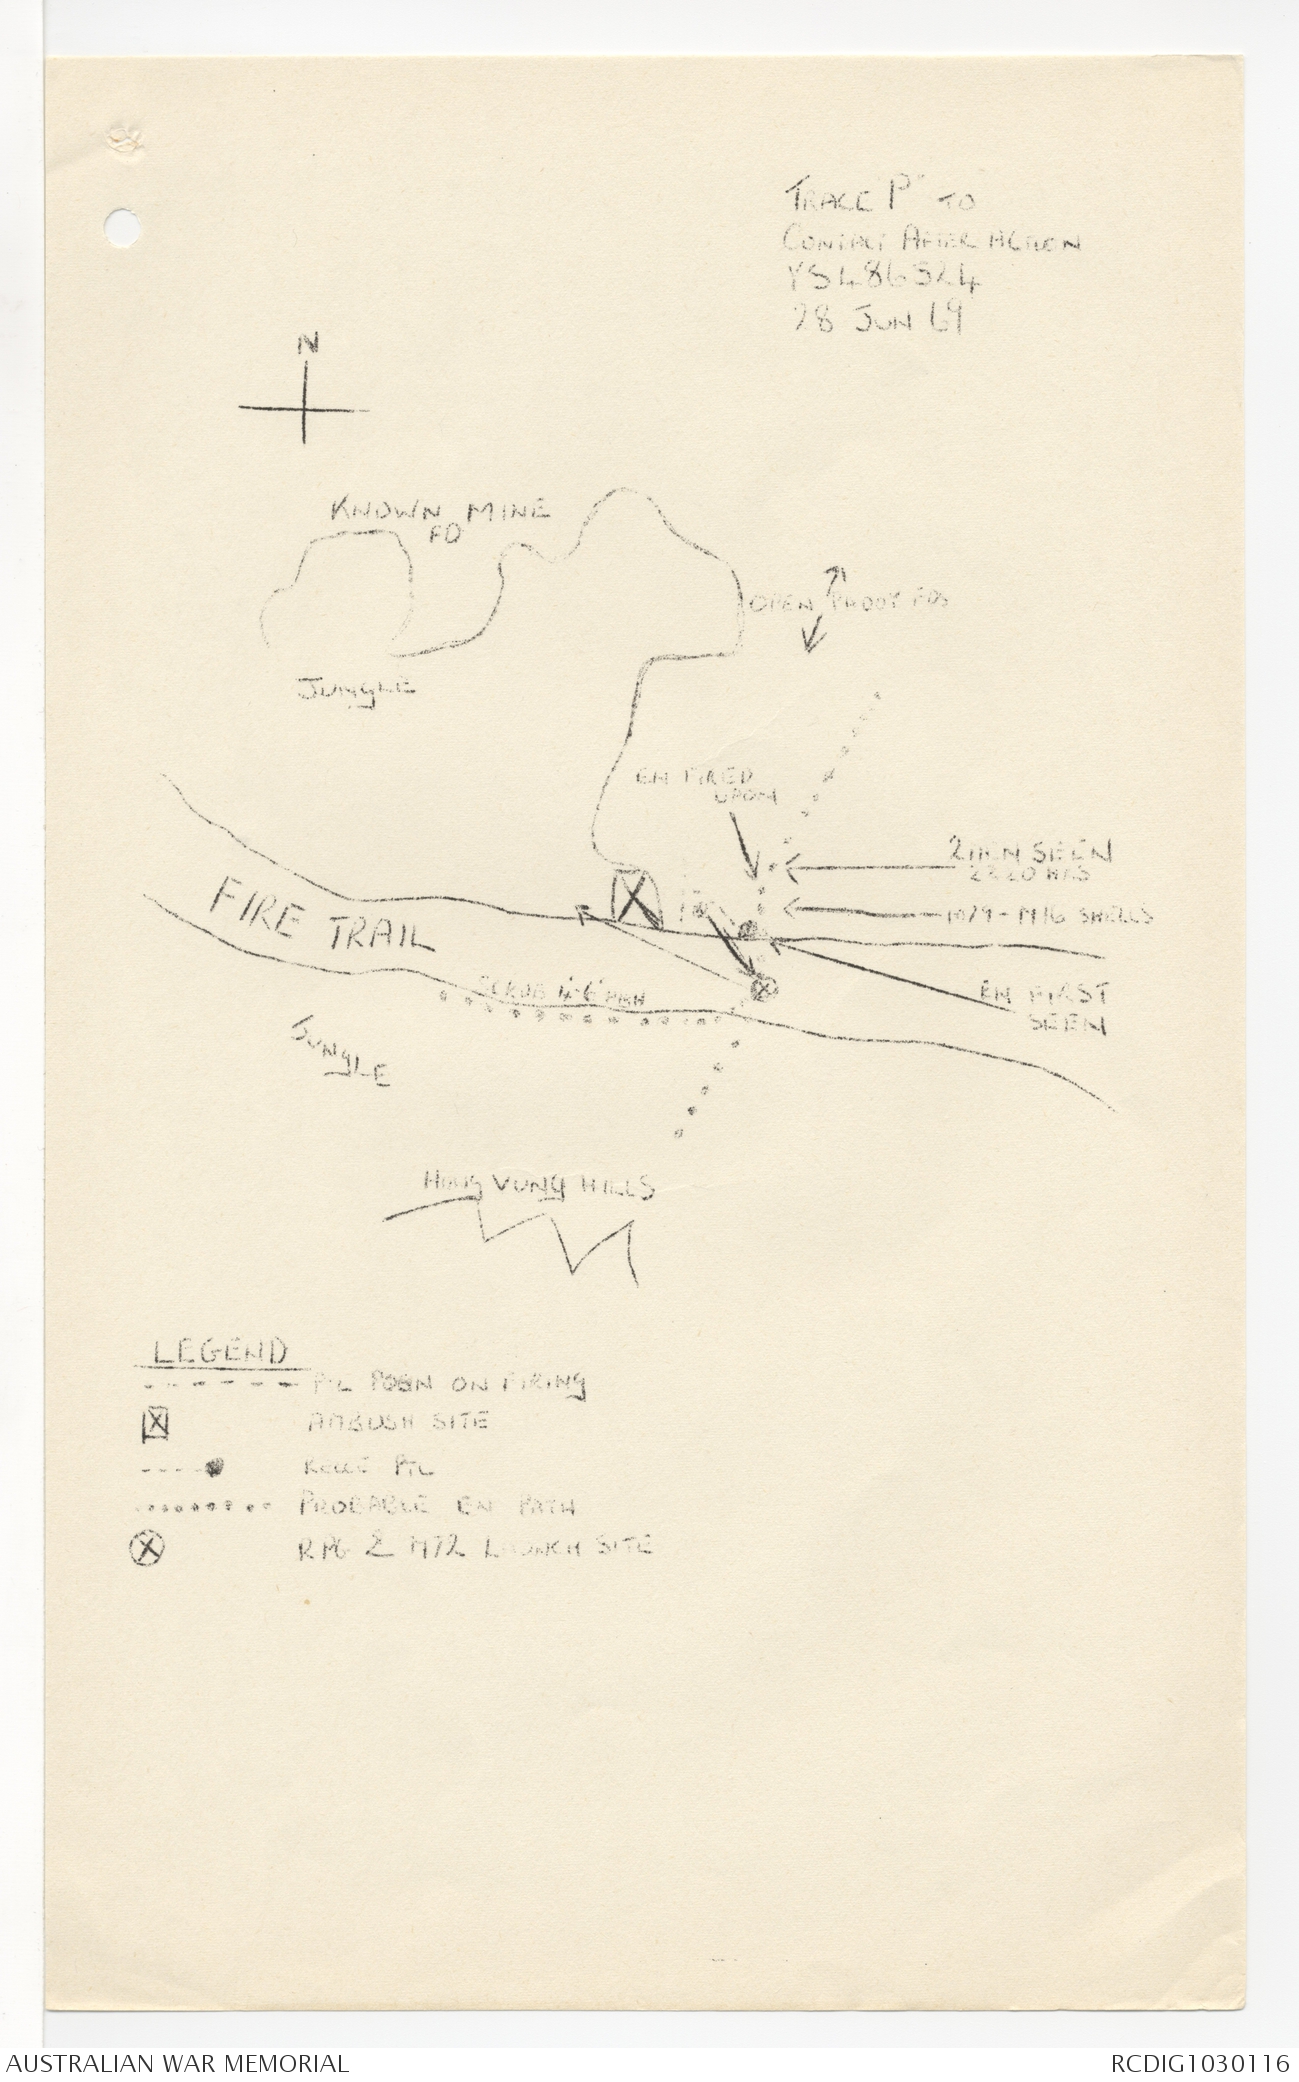 TRACE "P" TO
CONTACT AFTER ACTION
YS486524
28 JUN 69
N
KNOWN MINE
FD
OPEN PADDY FDS
JUNGLE
EN FIRED
UPON
2 MEN SEEN
2220 HRS
M79 - M16 SHELLS
FIRE TRAIL
SCRUB 4'-6' HIGH
EN FIRST
SEEN
JUNGLE
HUNG VUNG HILLS
LEGEND
PTL POSN ON FIRING
AMBUSH SITE
RECCE PTL
PROBABLE EN PATH
RPG 2 M72 LAUNCH SITE
AUSTRALIAN WAR MEMORIAL
RCDIG1030116